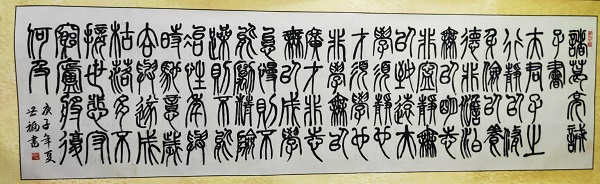 諸葛亮誡
子書
夫君子之
行靜以修
身儉以養
德非澹泊
無以明志
非寧靜無
以致遠夫
學須靜也
才須學也
非學無以
廣才非志
無以成學
慆慢則不
能勵精險
躁則不能
治性年與
時馳意與
歲去遂成
枯落多不
接世悲守
窮廬將復
何及
庚子年夏
書